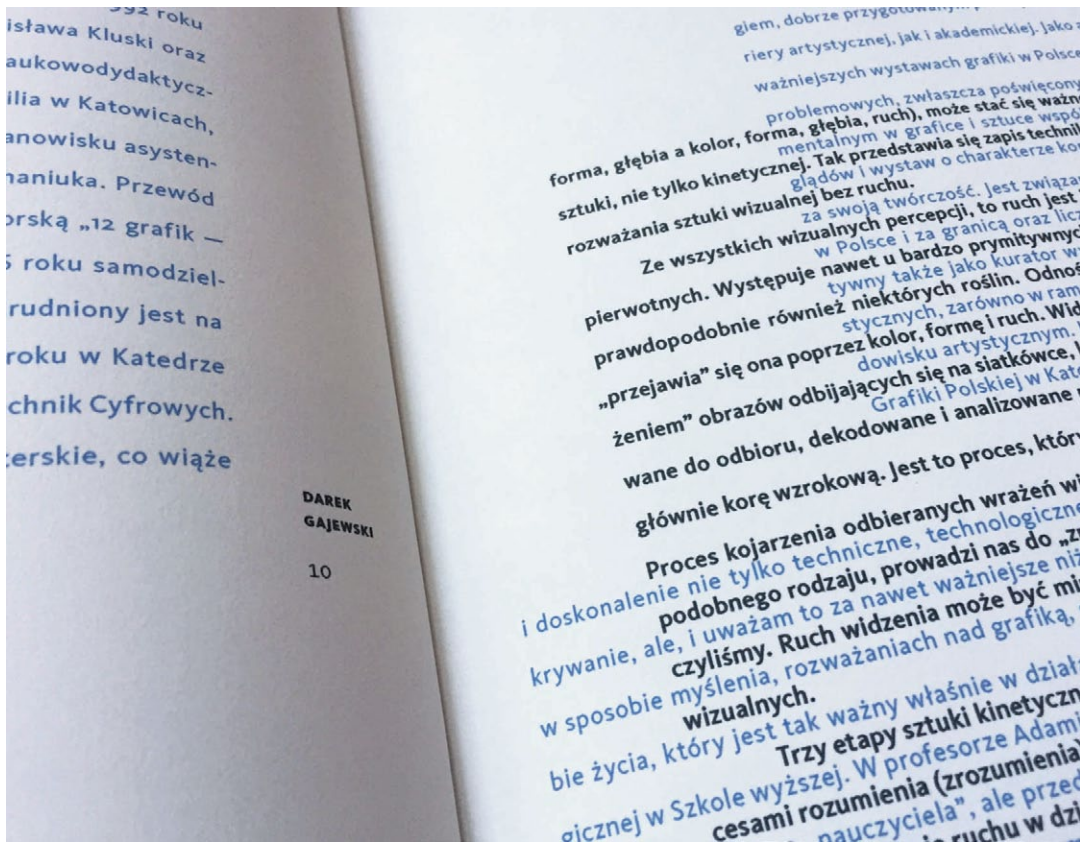 992 roku
isława Kluski oraz
aukowodydaktycz-
ilia w Katowicach,
anowisku asysten-
naniuka. Przewód
orską „12 grafik —
5 roku samodziel-
rudniony jest na
roku w Katedrze
chnik Cyfrowych.
erskie, co wiąże
DAREK
GAJEWSKI
10
giem, dobrze przygotowanym
riery artystycznej, jak i akademickiej. Jako
ważniejszych wystawach grafiki w Polsce
problemowych, zwłaszcza poświęcony
forma, głębia a kolor, forma, głębia, ruch), może stać się ważn
mentalnym w grafice i sztuce wspó
sztuki, nie tylko kinetycznej. Tak przedstawia się zapis technik
glądów i wystaw o charakterze ko
rozważania sztuki wizualnej bez ruchu.
za swoją twórczość. Jest związa
Ze wszystkich wizualnych percepcji, to ruch jest
w Polsce i za granicą oraz licz
pierwotnych. Występuje nawet u bardzo prymitywnyc
tywny także jako kurator w
prawdopodobnie również niektórych roślin. Odnoś
stycznych, zarówno w ram
„przejawia” się ona poprzez kolor, formę i ruch. Wid
dowisku artystycznym.
żeniem” obrazów odbijających się na siatkówce,
Grafiki Polskiej w Kato
wane do odbioru, dekodowane i analizowane
głównie korę wzrokową. Jest to proces, któr
Proces kojarzenia odbieranych wrażeń wi
i doskonalenie nie tylko techniczne, technologiczne
podobnego rodzaju, prowadzi nas do „z
krywanie, ale, i uważam to za nawet ważniejsze niż
czyliśmy. Ruch widzenia może być mi
w sposobie myślenia, rozważaniach nad grafiką,
wizualnych.
bie życia, który jest tak ważny właśnie w dział
Trzy etapy sztuki kinetyczn
gicznej w Szkole wyższej. W profesorze Adami
cesami rozumienia (zrozumienia)
nauczyciela”, ale przed
ruchu w dzi